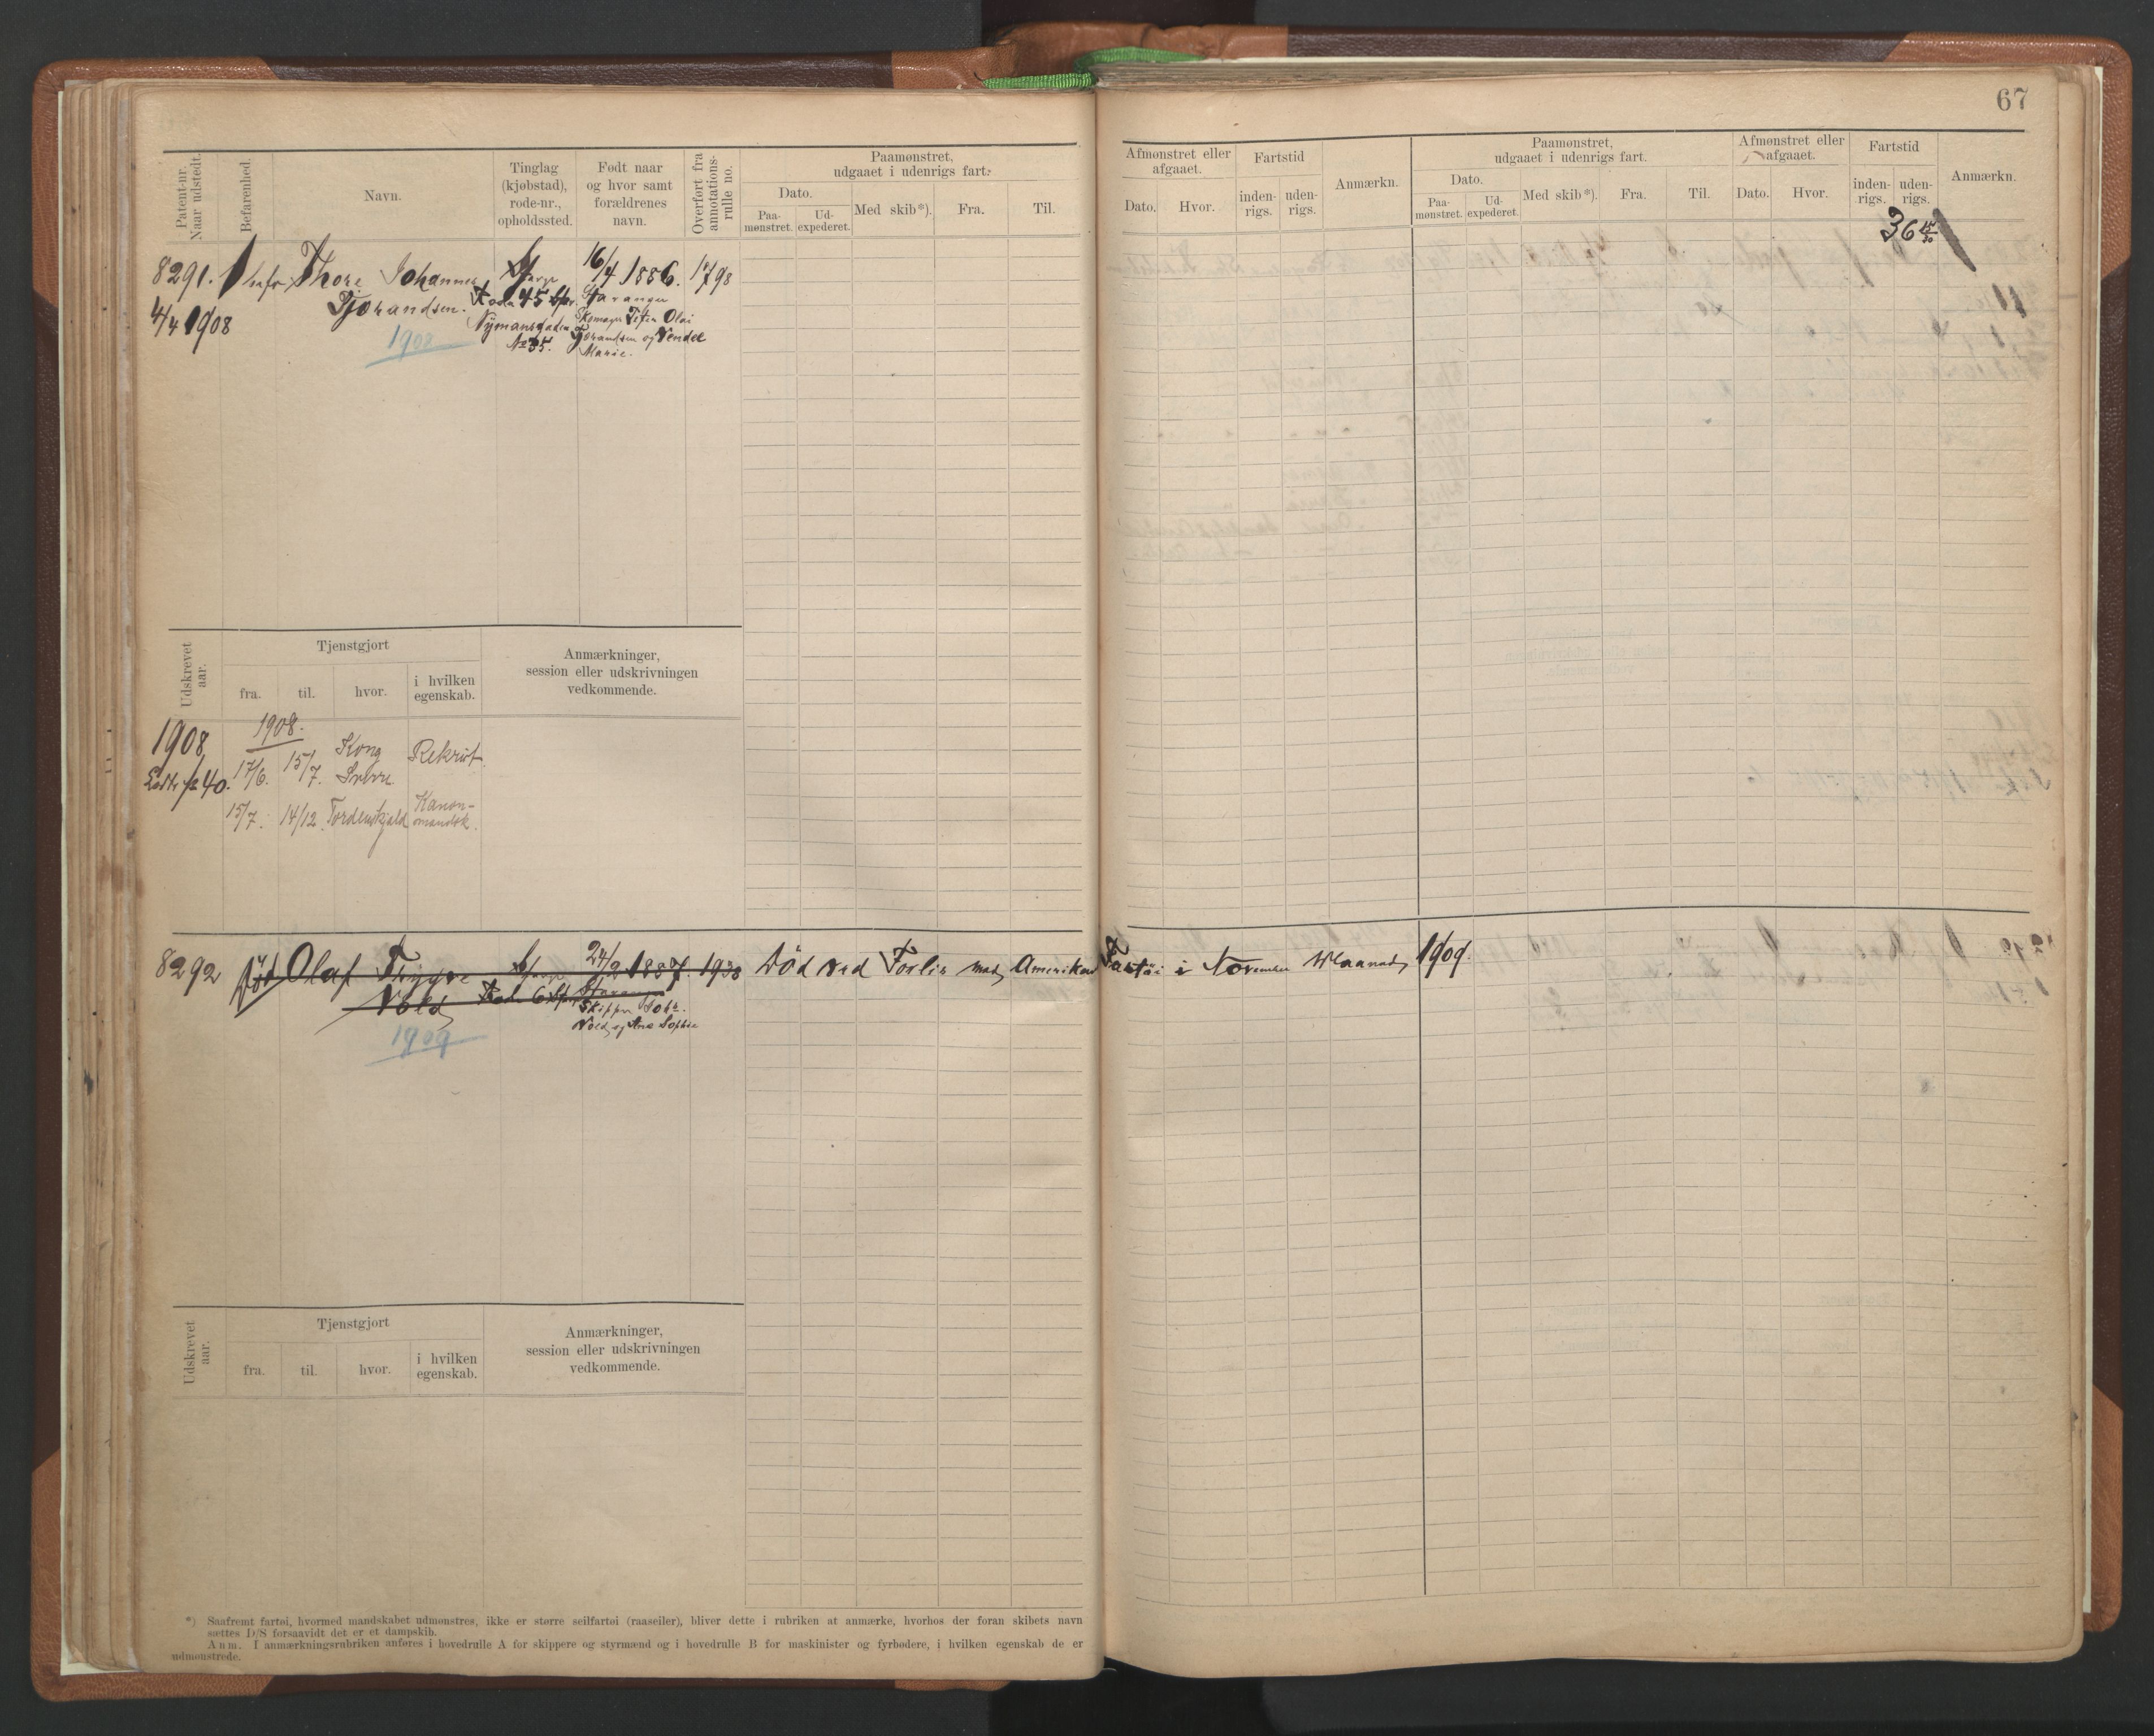 67
Patent-nr. Naar udstedt.
Befarenhed.
Navn.
Tinglag (kjøbstad), rode-nr., opholdssted.
Født naar og hvor samt forældrenes navn.
Overført fra annotations-rulle no.
Paamønstret, udgaaet i udenrigs fart.
Dato.
Paa-mønstret.
Ud-expederet.
Med skib*).
Fra.
Til.
Afmønstret eller afgaaet.
Dato.
Hvor.
Fartstid
inden-rigs.
uden-rigs.
Anmærkn.
Paamønstret, udgaaet i udenrigs fart.
Dato.
Paa-mønstret.
Ud-expederet.
Med skib*).
Fra.
Til.
Afmønstret eller afgaaet.
Dato.
Hvor.
Fartstid
inden-rigs.
uden-rigs.
Anmærkn.
36 15/30
8291.
4/4 1908
Thore Johannes
Tjorandsen.
1908
Rode 45
Nymansgaden
No 35.
16/4 1886.
Stavanger
Skomager Olai
Tjorandsen og Vendel
Marie.
Udskrevet aar.
Tjenstgjort
fra.
til.
hvor.
i hvilken egenskab.
Anmærkninger, session eller udskrivningen vedkommende.
1908
40.
1908.
17/6. 15/7. Kong Sverre Rekrut.
15/7. 14/12. Tordenskjold Kanon-mandsk.
8292
Død Olaf Trygve
Vold
1909
Rode 6
24/2 1887.
Stavanger
Skipper Joh.
Vold og Ane Sophie
1938
Død ved Forlis med Amerikansk Fartöi i November Maaned 1909.
Udskrevet aar.
Tjenstgjort
fra.
til.
hvor.
i hvilken egenskab.
Anmærkninger, session eller udskrivningen vedkommende.
*) Saafremt fartøi, hvormed mandskabet udmønstres, ikke er større seilfartøi (raaseiler), bliver dette i rubriken at anmærke, hvorhos der foran skibets navn
sættes D/S forsaavidt det er et dampskib.
Anm. I anmærkningsrubriken anføres i hovedrulle A for skippere og styrmænd og i hovedrulle B for maskinister og fyrbødere, i hvilken egenskab de er
udmønstrede.